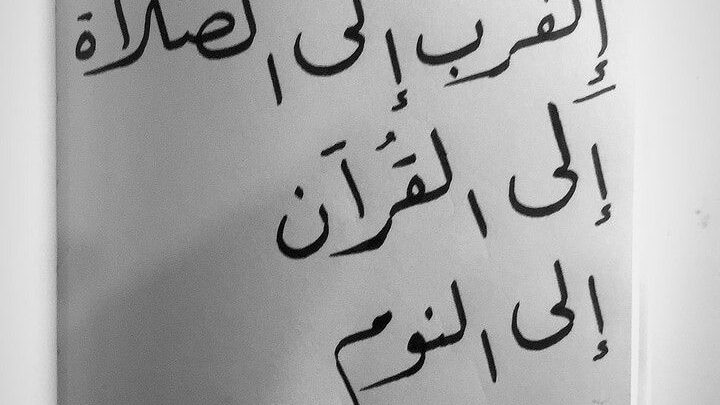 إلى الصلاة
إلى القُرآن
إلى النوم